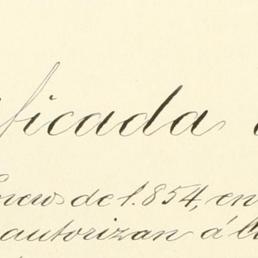 ificada
Enero de 1.854, en
autorizan á la